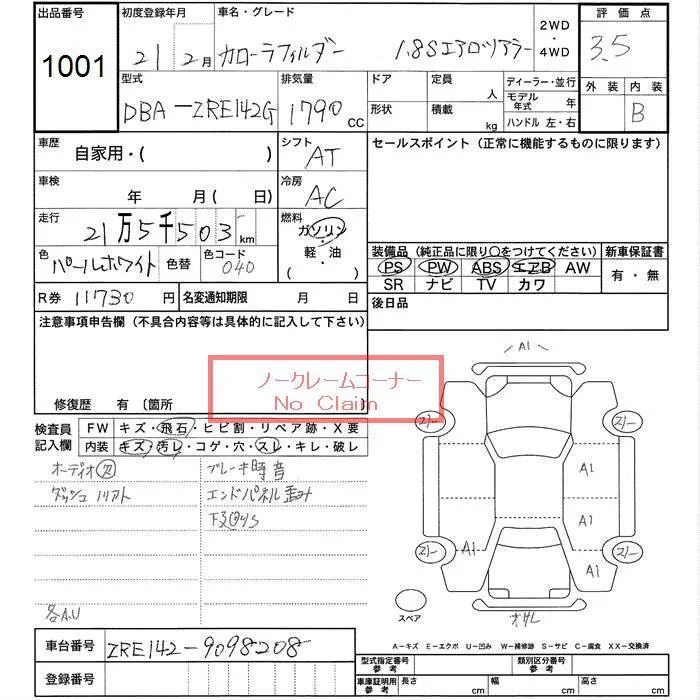 出品番号 初度登録年月 車名・グレード 2WD・4WD 評価点
1001 21 2月 カローラフィルダー 1.8Sエアロツアラー 3.5
型式 排気量 ドア 定員 人 ディーラー・並行 外装 内装
DBA-ZRE142G 1790 cc 形状 積載 kg モデル年式 年 B
ハンドル 左・右
車歴 自家用・( ) シフト AT セールスポイント (正常に機能するものに限ります)
車検 年 月( 日) 冷房 AC
走行 21万5千503km 燃料 ガソリン・軽油・( )
色 パールホワイト 色替 色コード 040
装備品 (純正品に限り○をつけてください) 新車保証書
PS PW ABS エアB AW 有・無
SR ナビ TV カワ
R券 11730円 名変通知期限 月 日 後日品
注意事項申告欄 (不具合内容等は具体的に記入して下さい)
ノークレームコーナー
No Claim
修復歴 有 〔箇所
検査員記入欄 FW キズ・飛石・ヒビ割・リペア跡・X要
内装 キズ・汚レ・コゲ・穴・スレ・キレ・破レ
オーディオ欠 ブレーキ時音
エンドパネル歪み
各A.U
A1
A1
A1
A1
A1
スペア
A-キズ E-エクボ U-凹み W-補修跡 S-サビ C-腐食 XX-交換済
車台番号 ZRE142-9098208
登録番号
型式指定番号 参考 類別区分番号 参考
車庫証明用 参考 長さ cm 幅 cm 高さ cm